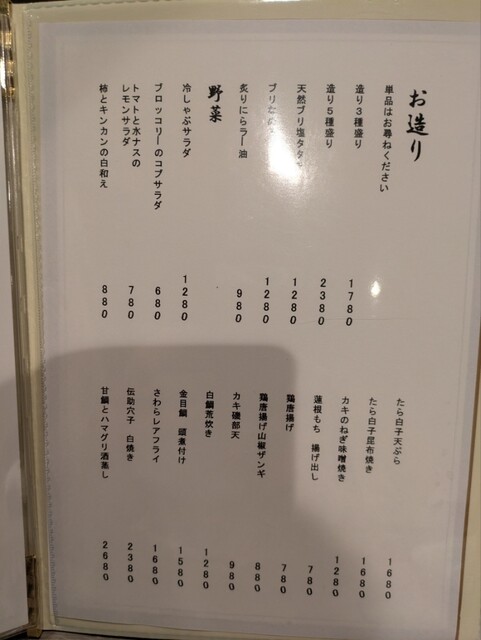 お造り
単品はお尋ねください
造り3種盛り 1780
造り5種盛り 2380
天然ブリ塩タタ 1280
ブリ 1280
炙りにらラー油 980
野菜
冷しゃぶサラダ 1280
ブロッコリーのコブサラダ 680
トマトと水ナスの
レモンサラダ 780
柿とキンカンの白和え 880
たら白子天ぷら 1680
たら白子昆布焼き 1680
カキのねぎ味噌焼き 1280
蓮根もち 揚げ出し 780
鶏唐揚げ 780
鶏唐揚げ山椒ザンギ 880
カキ磯部天 980
白鯛荒炊き 1280
金目鯛 頭煮付け 1580
さわらレアフライ 1680
伝助穴子 白焼き 2380
甘鯛とハマグリ酒蒸し 2680